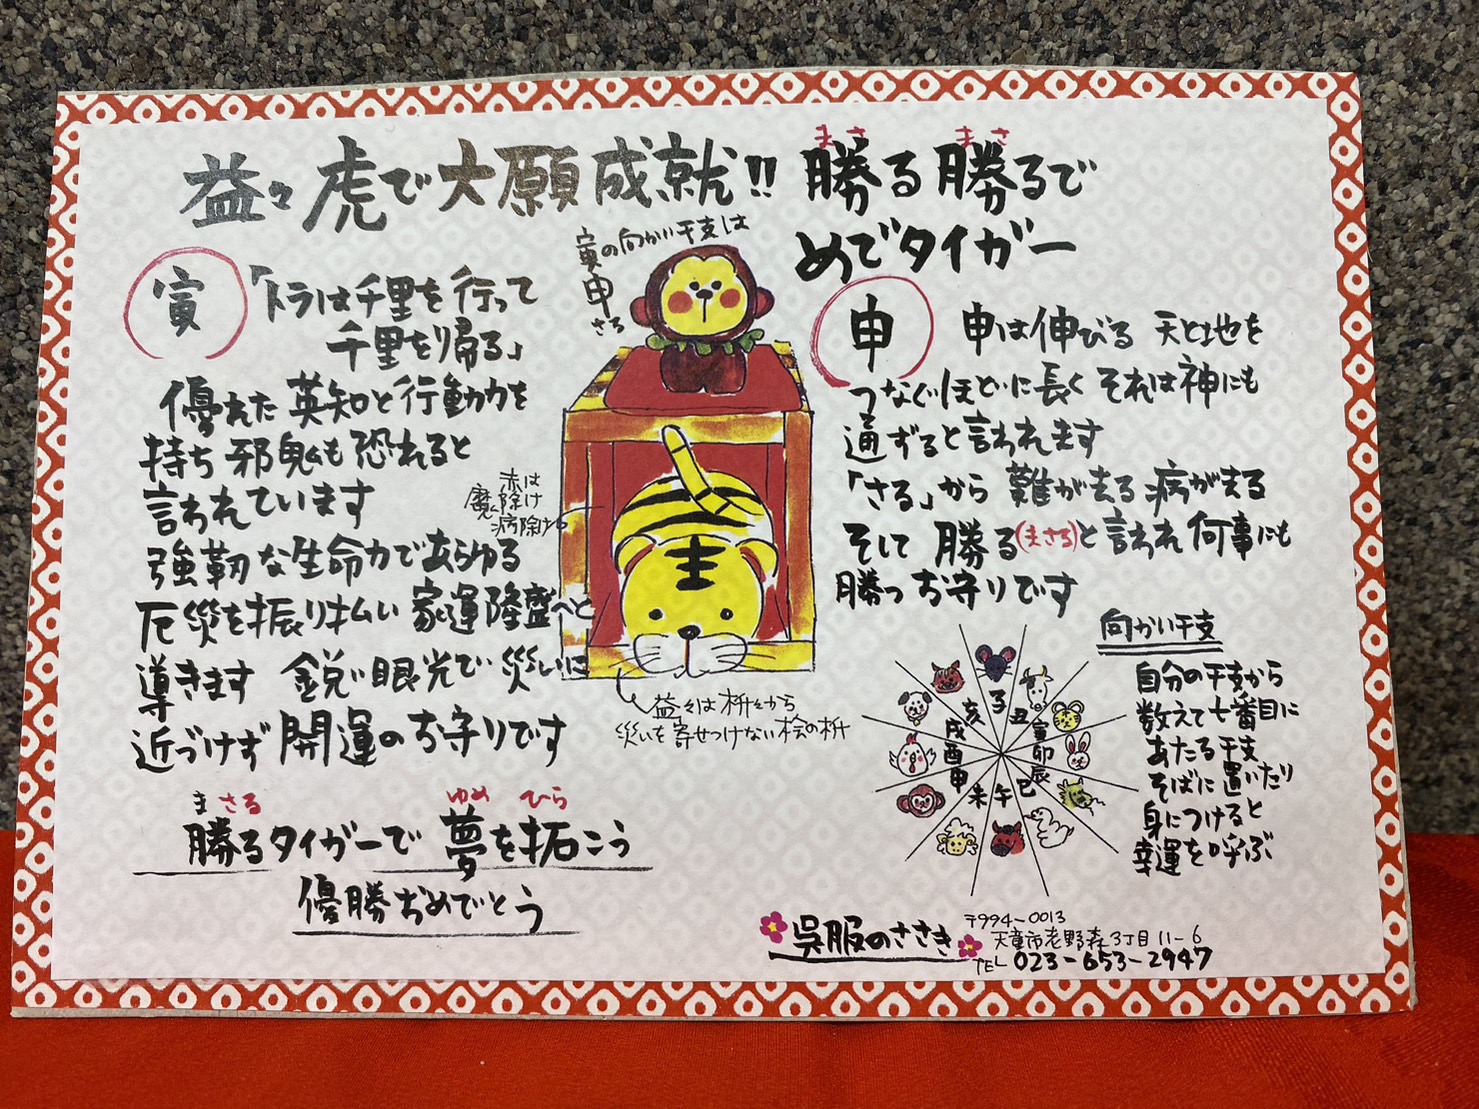 益々虎で大願成就!! 勝る勝るで
まさ まさ
めでタイガー
寅
「トラは千里を行って
千里を帰る」
優れた英知と行動力を
持ち邪鬼も恐れると
言われています
強靭な生命力であらゆる
厄災を振り払い家運隆盛へと
導きます 鋭い眼光で災いに
近づけず開運のお守りです
まさる ゆめ ひら
勝るタイガーで夢を拓こう
優勝おめでとう
寅の向かい干支は
申
さる
赤は
魔除け
病除け
益々は枡々から
災いを寄せつけない桧の枡
申
申は伸びる 天と地を
つなぐほどに長くそれは神にも
通ずると言われます
「さる」から難が去る病が去る
そして勝る(まさる)と言われ何事にも
勝つお守りです
向かい干支
自分の干支から
数えて七番目に
あたる干支
そばに置いたり
身につけると
幸運を呼ぶ
子
丑
寅
卯
辰
巳
午
未
申
酉
戌
亥
呉服のささき
〒994-0013
天童市老野森3丁目11-6
TEL 023-653-2947